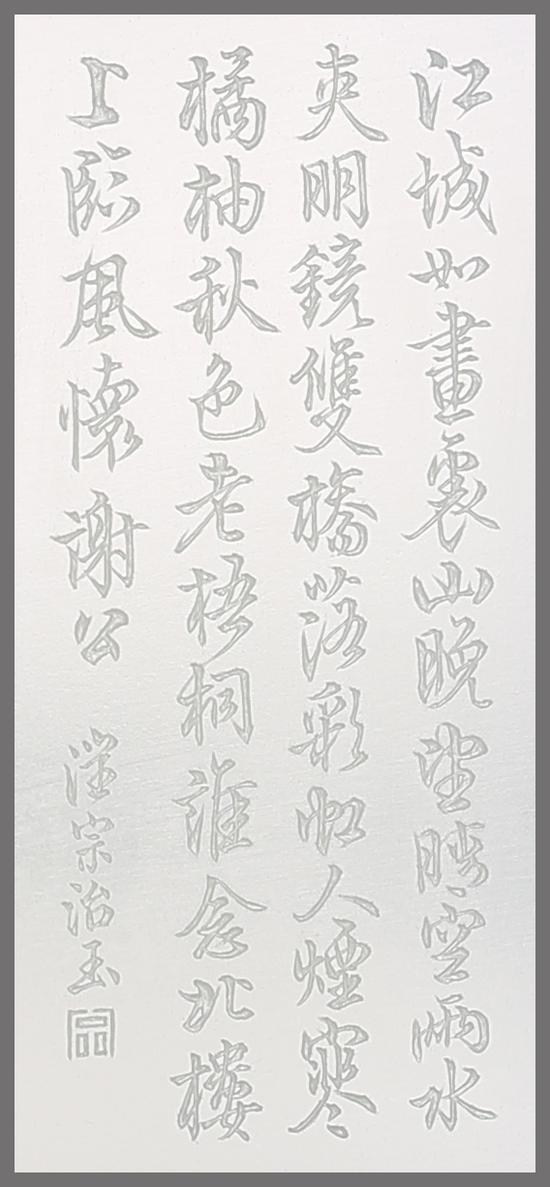 江城如畫裏山晚望晴空兩水
夾明鏡雙橋落彩虹人煙寒
橘柚秋色老梧桐誰念北樓
上臨風懷謝公
宗治玉